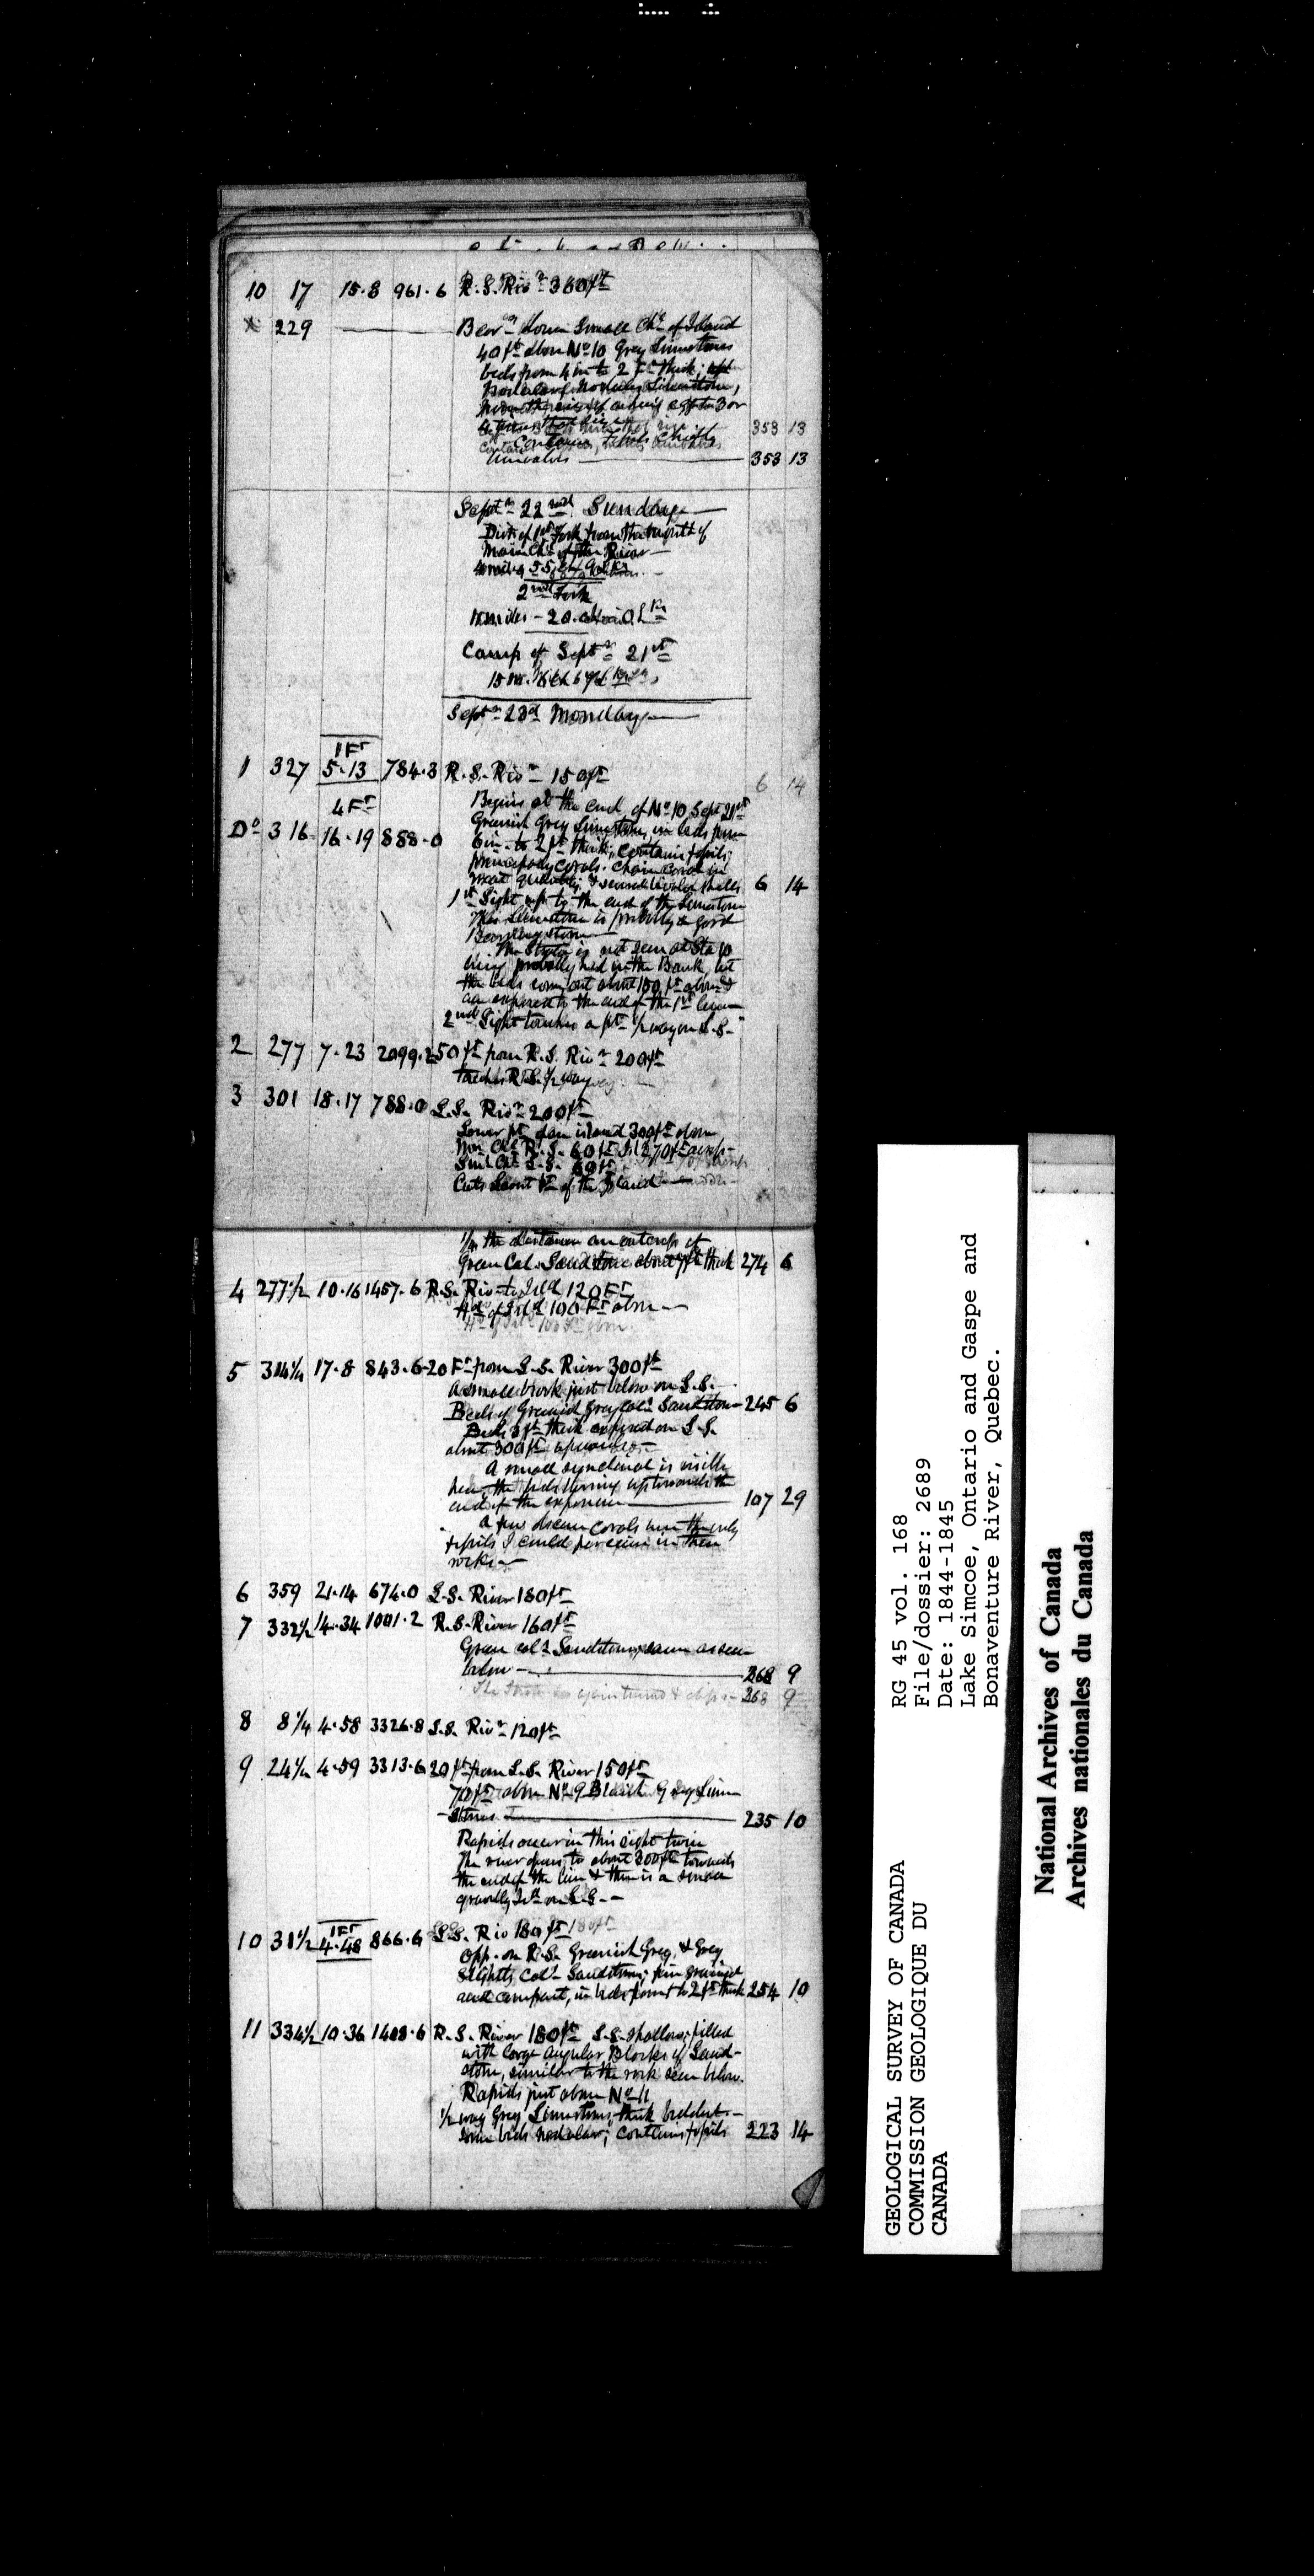 10 17 15.8 961.6 R.S. Rivr 360ft
x 229 Bearg down Small Chl of Island
40 ft above No 10 Grey Limestones
beds from 4 in to 2 ft thick;
353 13
Contains fossils chiefly
353 13
Septr 22nd Sunday
Dist of 1st Fork from the mouth of
Main Chl of the River
2nd Fork
Camp of Septr 21st
Septr 23d Monday
1 327 1Ft 5.13 784.3 R.S. Rivr 150ft
6 14
Begins at the end of No 10 Sept 21st
Do 316 4Ft 16.19 888.0 Greenish Grey Limestone, in beds from
6 in. to 2 ft thick, contains fossils,
principally corals. Chain coral in
great quantity, & several bivalve shells 6 14
1st Sight up to the end of the Limestone
This Limestone is probably a good
Building stone
The Strata is not seen at Sta 10
being probably hid in the Bank, but
the beds come out about 100 ft above &
are exposed to the end of the 1st line
2nd Sight touches a pt 1/2 way on L.S.
2 277 7.23 2099.2 50 ft from R.S. Rivr 200ft
touches R.S. 1/2 way
3 301 18.17 788.0 L.S. Rivr 200ft
Lower pt of an island 300ft above
Mn Chl R.S. 60ft Isld 270ft across
Sml Chl L.S. 60ft
Cuts Lower Pt of the Island
1/4 the distance an outcrop of
Green Cal. Sandstone about 7ft thick 274 6
4 277 1/2 10.16 1457.6 R.S. Rivr to Isld 120 Ft
Hd of Isld 100 Ft above
5 314 1/4 17.8 843.6 20 Ft from L.S. River 300ft
A small brook just below on L.S.
Beds of Greenish Grey Cals Sandstone 245 6
Beds 3 ft thick exposed on L.S.
about 300ft upwards
A small synclinal is visible
here, the beds turning up towards the
end of the exposure 107 29
a few obscure corals were the only
fossils I could perceive in these
rocks
6 359 21.14 674.0 L.S. River 180ft
7 332 1/2 14.34 1001.2 R.S. River 160ft
Green cals Sandstone, same as seen
below 268 9
The Strata are again turned & dips 268 9
8 8 1/4 4.58 3326.8 L.S. Rivr 120ft
9 24 1/2 4.59 3313.6 20 ft from L.S. River 150ft
70ft above No 9 Blaish Grey Lime
stones 235 10
Rapids occur in this sight twice
The river opens to about 300ft towards
the end of the line & there is a small
gravelly Isld on L.S.
10 31 1/2 1Ft 4.48 866.6 L.S. Riv 180 ft
Opp. on R.S. Greenish Grey, & Grey
slightly Cals Sandstone; fine grained
and compact, in beds from 1 to 2 ft thick 254 10
11 334 1/2 10.36 1408.6 R.S. River 180ft L.S. shallow, filled
with large angular Blocks of Sand-
stone, similar to the rock seen below.
Rapids just above No 11
1/2 way Grey Limestone, thick bedded
some beds nodular; contains fossils 223 14
GEOLOGICAL SURVEY OF CANADA
COMMISSION GEOLOGIQUE DU
CANADA
RG 45 vol. 168
File/dossier: 2689
Date: 1844-1845
Lake Simcoe, Ontario and Gaspe and
Bonaventure River, Quebec.
National Archives of Canada
Archives nationales du Canada